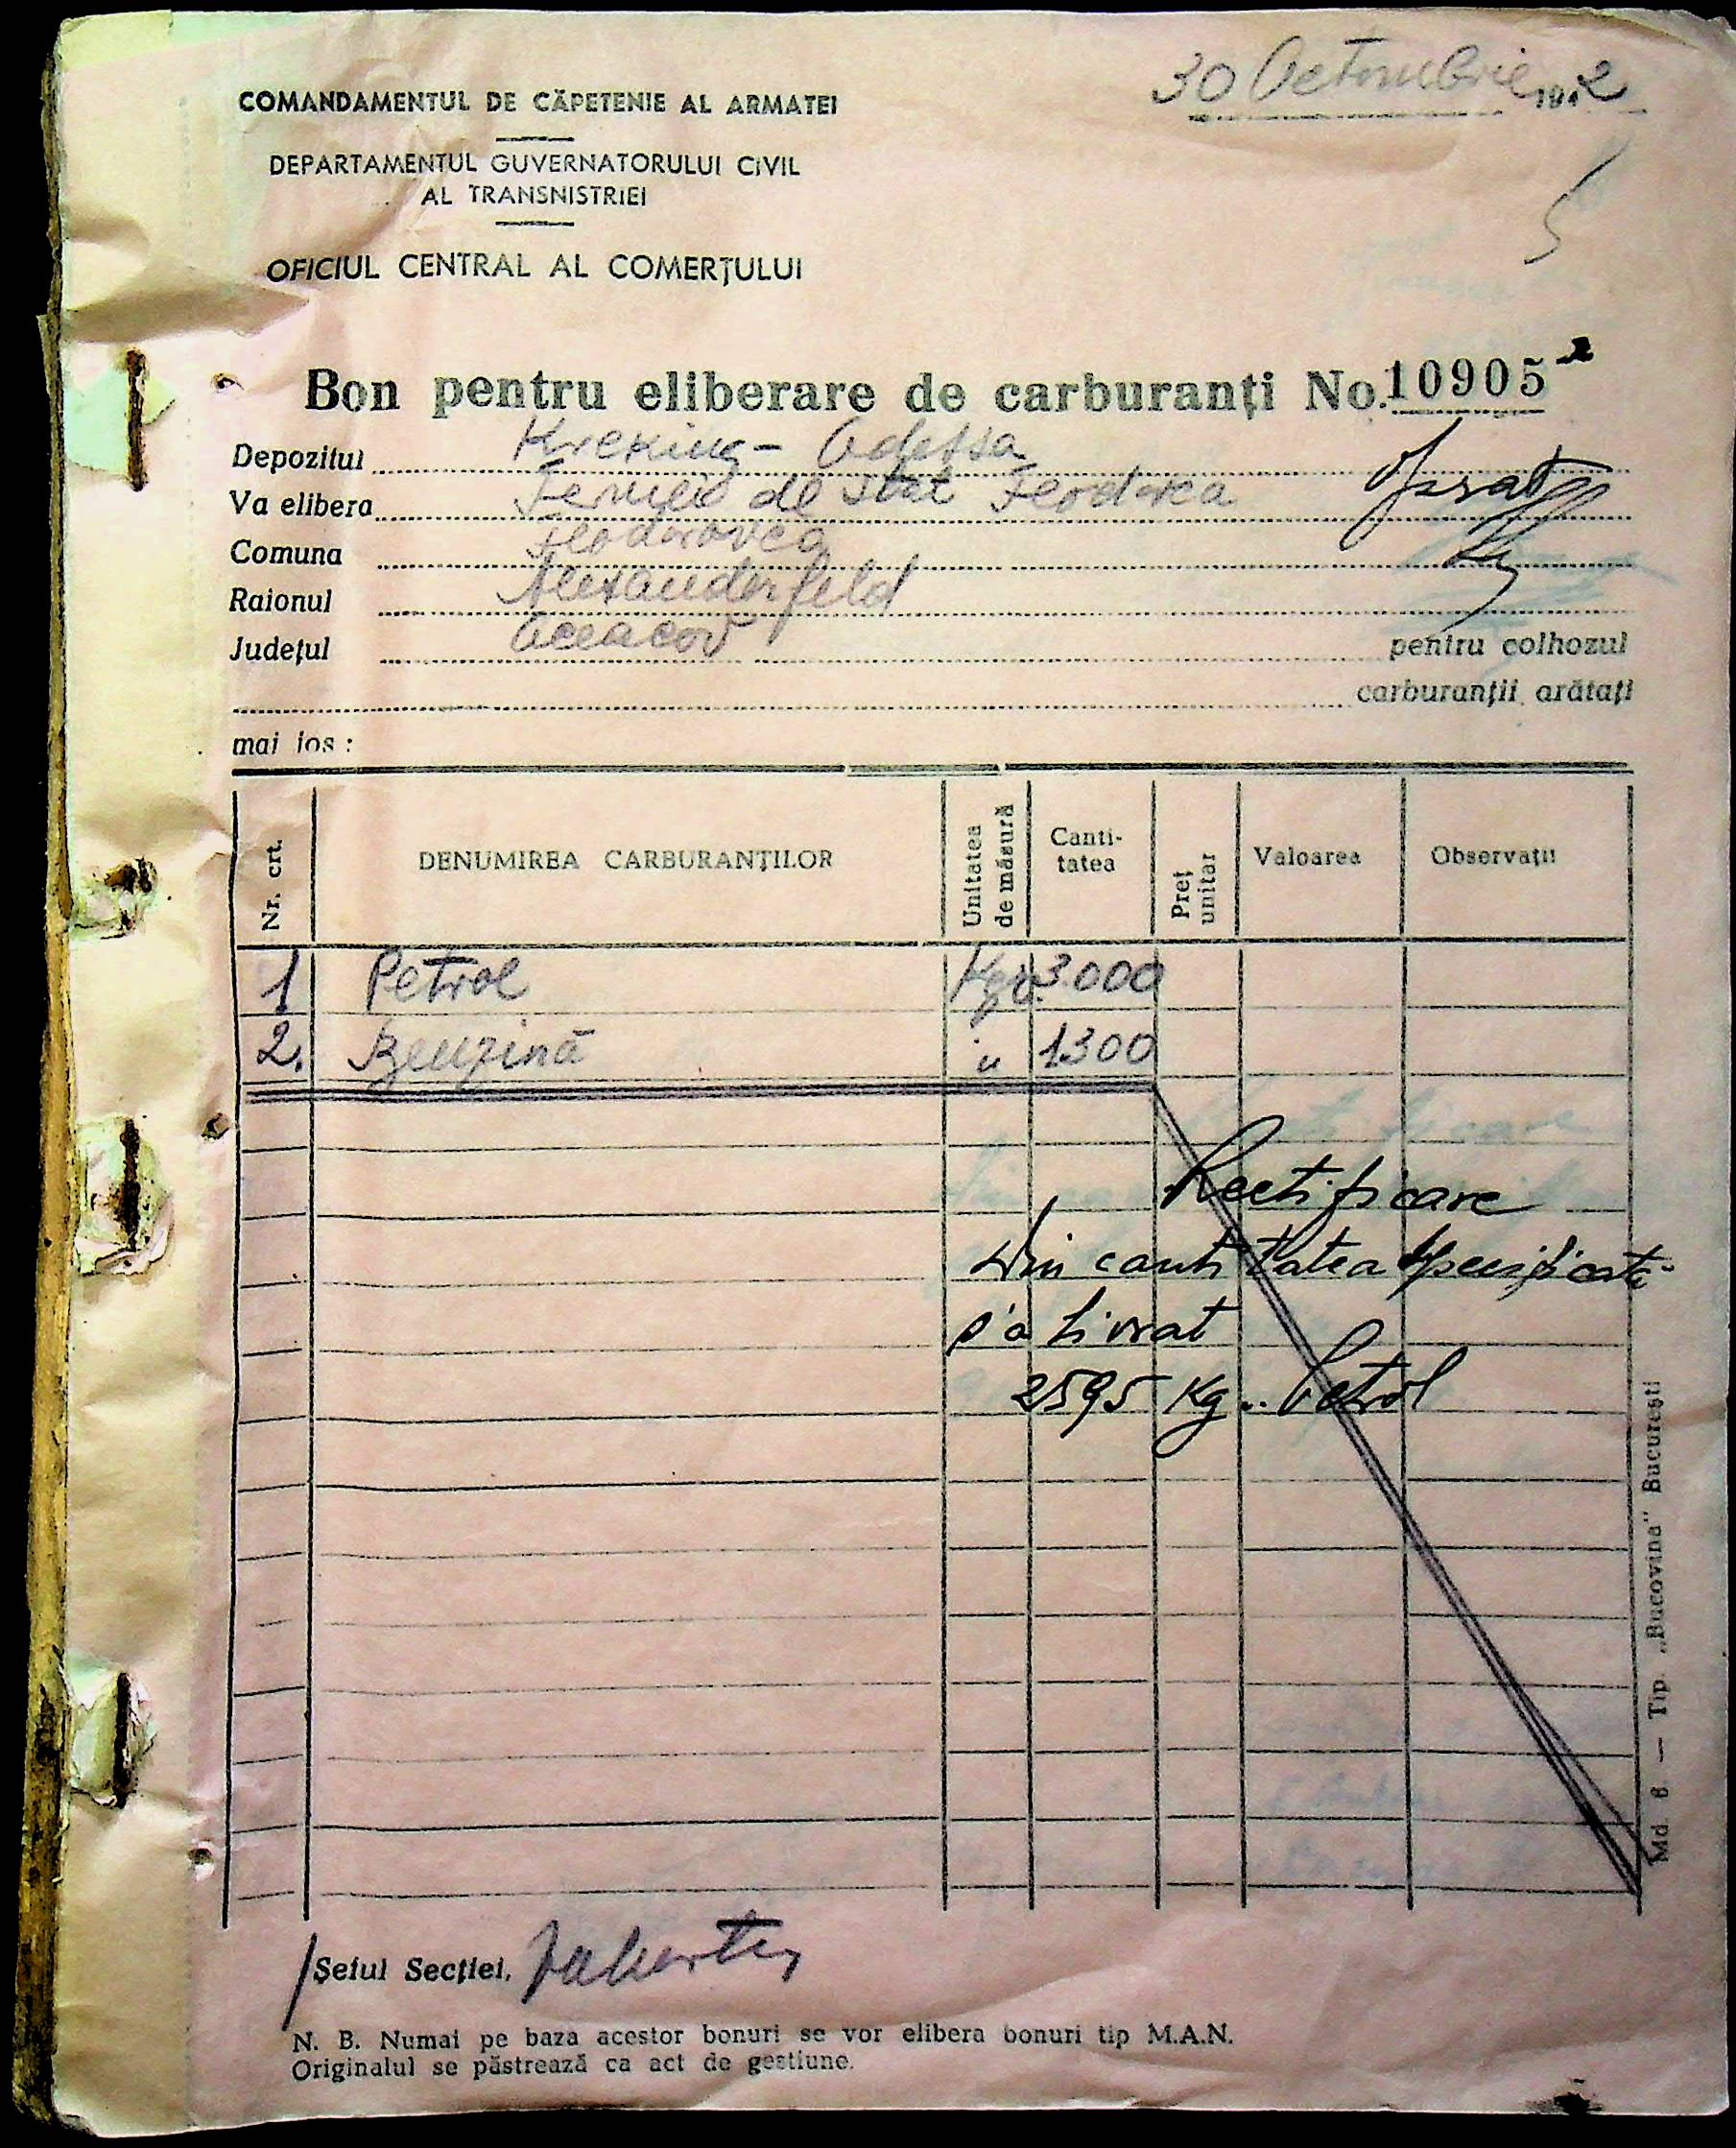 30 Octombrie 1942
COMANDAMENTUL DE CĂPETENIE AL ARMATEI
DEPARTAMENTUL GUVERNATORULUI CIVIL
AL TRANSNISTRIEI
OFICIUL CENTRAL AL COMERȚULUI
Bon pentru eliberare de carburanți No. 10905
Depozitul Kreking - Odessa
Va elibera Fermei de Stat
Comuna Feodorovca
Raionul Alexanderfeld
Județul Oceacov pentru colhozul
carburanții arătați
mai jos :
Nr. crt. DENUMIREA CARBURANȚILOR Unitatea de măsură Canti-tatea Preț unitar Valoarea Observații
1 Petrol Kgr. 3.000
2. Benzină " 1.300
Rectificare
Din cantitatea specificată
s'a livrat
2595 Kg. Petrol
Md. 6 — Tip. „Bucovina" București
Șeful Secției,
N. B. Numai pe baza acestor bonuri se vor elibera bonuri tip M.A.N.
Originalul se păstrează ca act de gestiune.